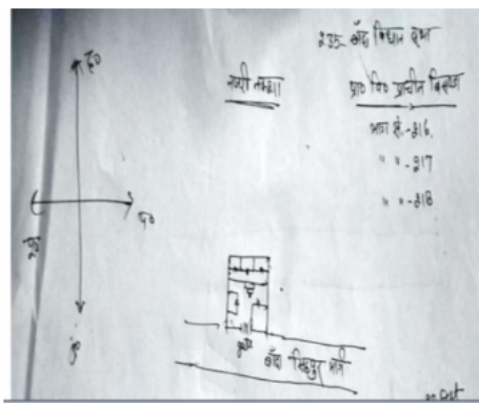 235- बाँदा विधान सभा
नजरी नक्शा
प्रा० वि० प्राचीन बिसण्डा
भाग सं.-216,
" " -217
" " -218
द०
पू०
प०
उ०
गेट
बाँदा सिंहपुर मार्ग